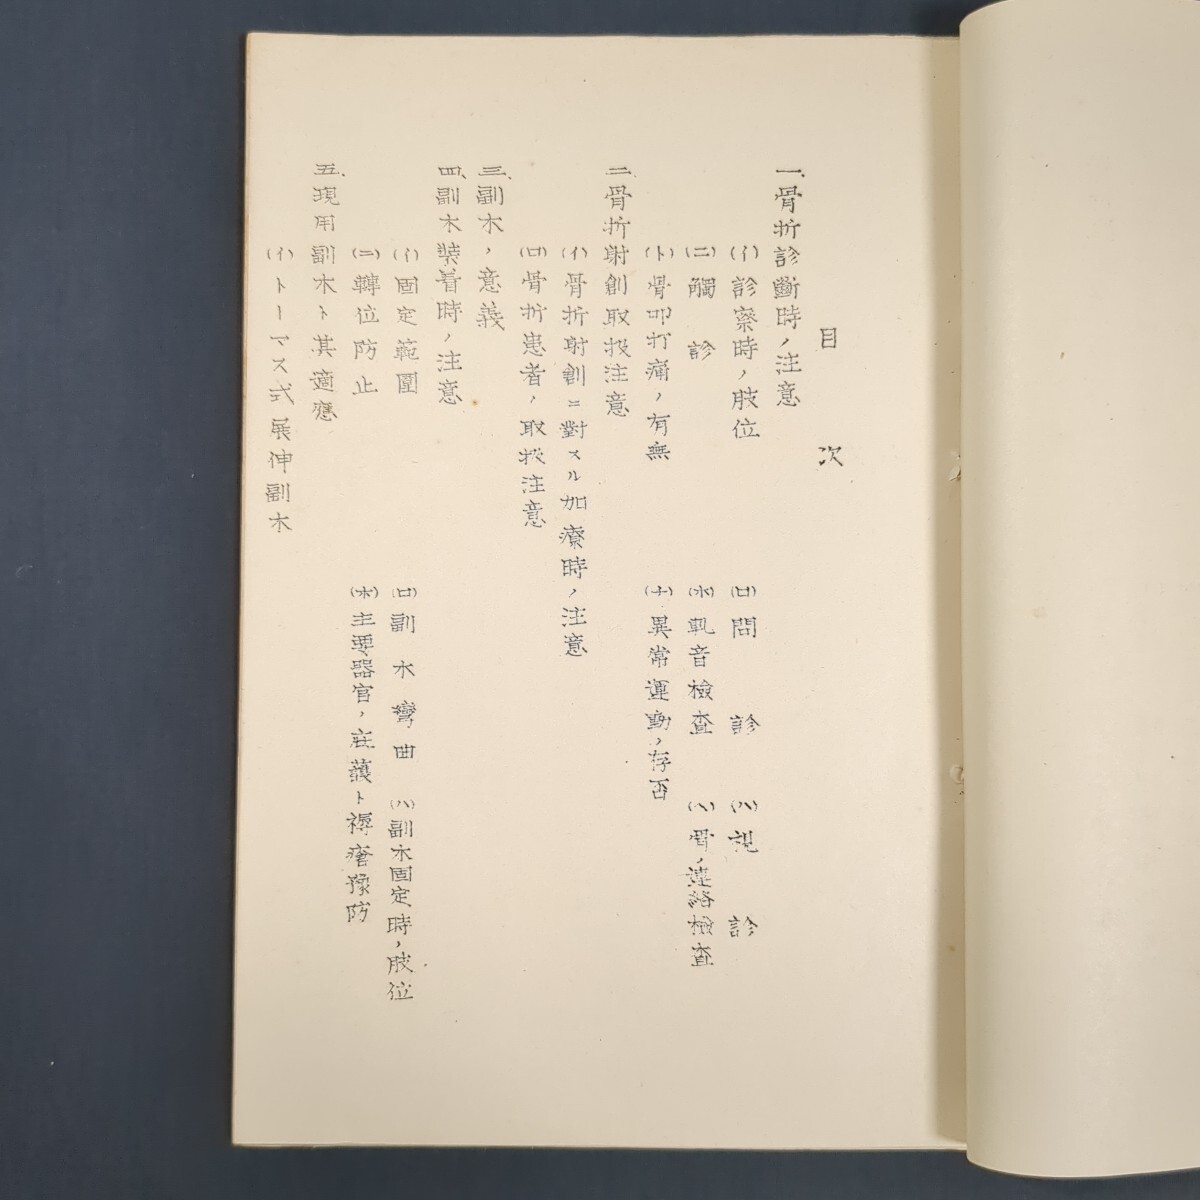 目次
一、骨折診斷時ノ注意
(イ)診察時ノ肢位 (ロ)問診 (ハ)視診
(ニ)觸診 (ホ)軋音檢査 (ヘ)骨ノ連絡檢査
(ト)骨叩打痛ノ有無 (チ)異常運動ノ存否
二、骨折射創取扱注意
(イ)骨折射創ニ對スル加療時ノ注意
(ロ)骨折患者ノ取扱注意
三、副木ノ意義
四、副木裝着時ノ注意
(イ)固定範圍 (ロ)副木彎曲 (ハ)副木固定時ノ肢位
(ニ)轉位防止 (ホ)主要器官ノ庇護ト褥瘡豫防
五、現用副木ト其適應
(イ)トーマス式展伸副木